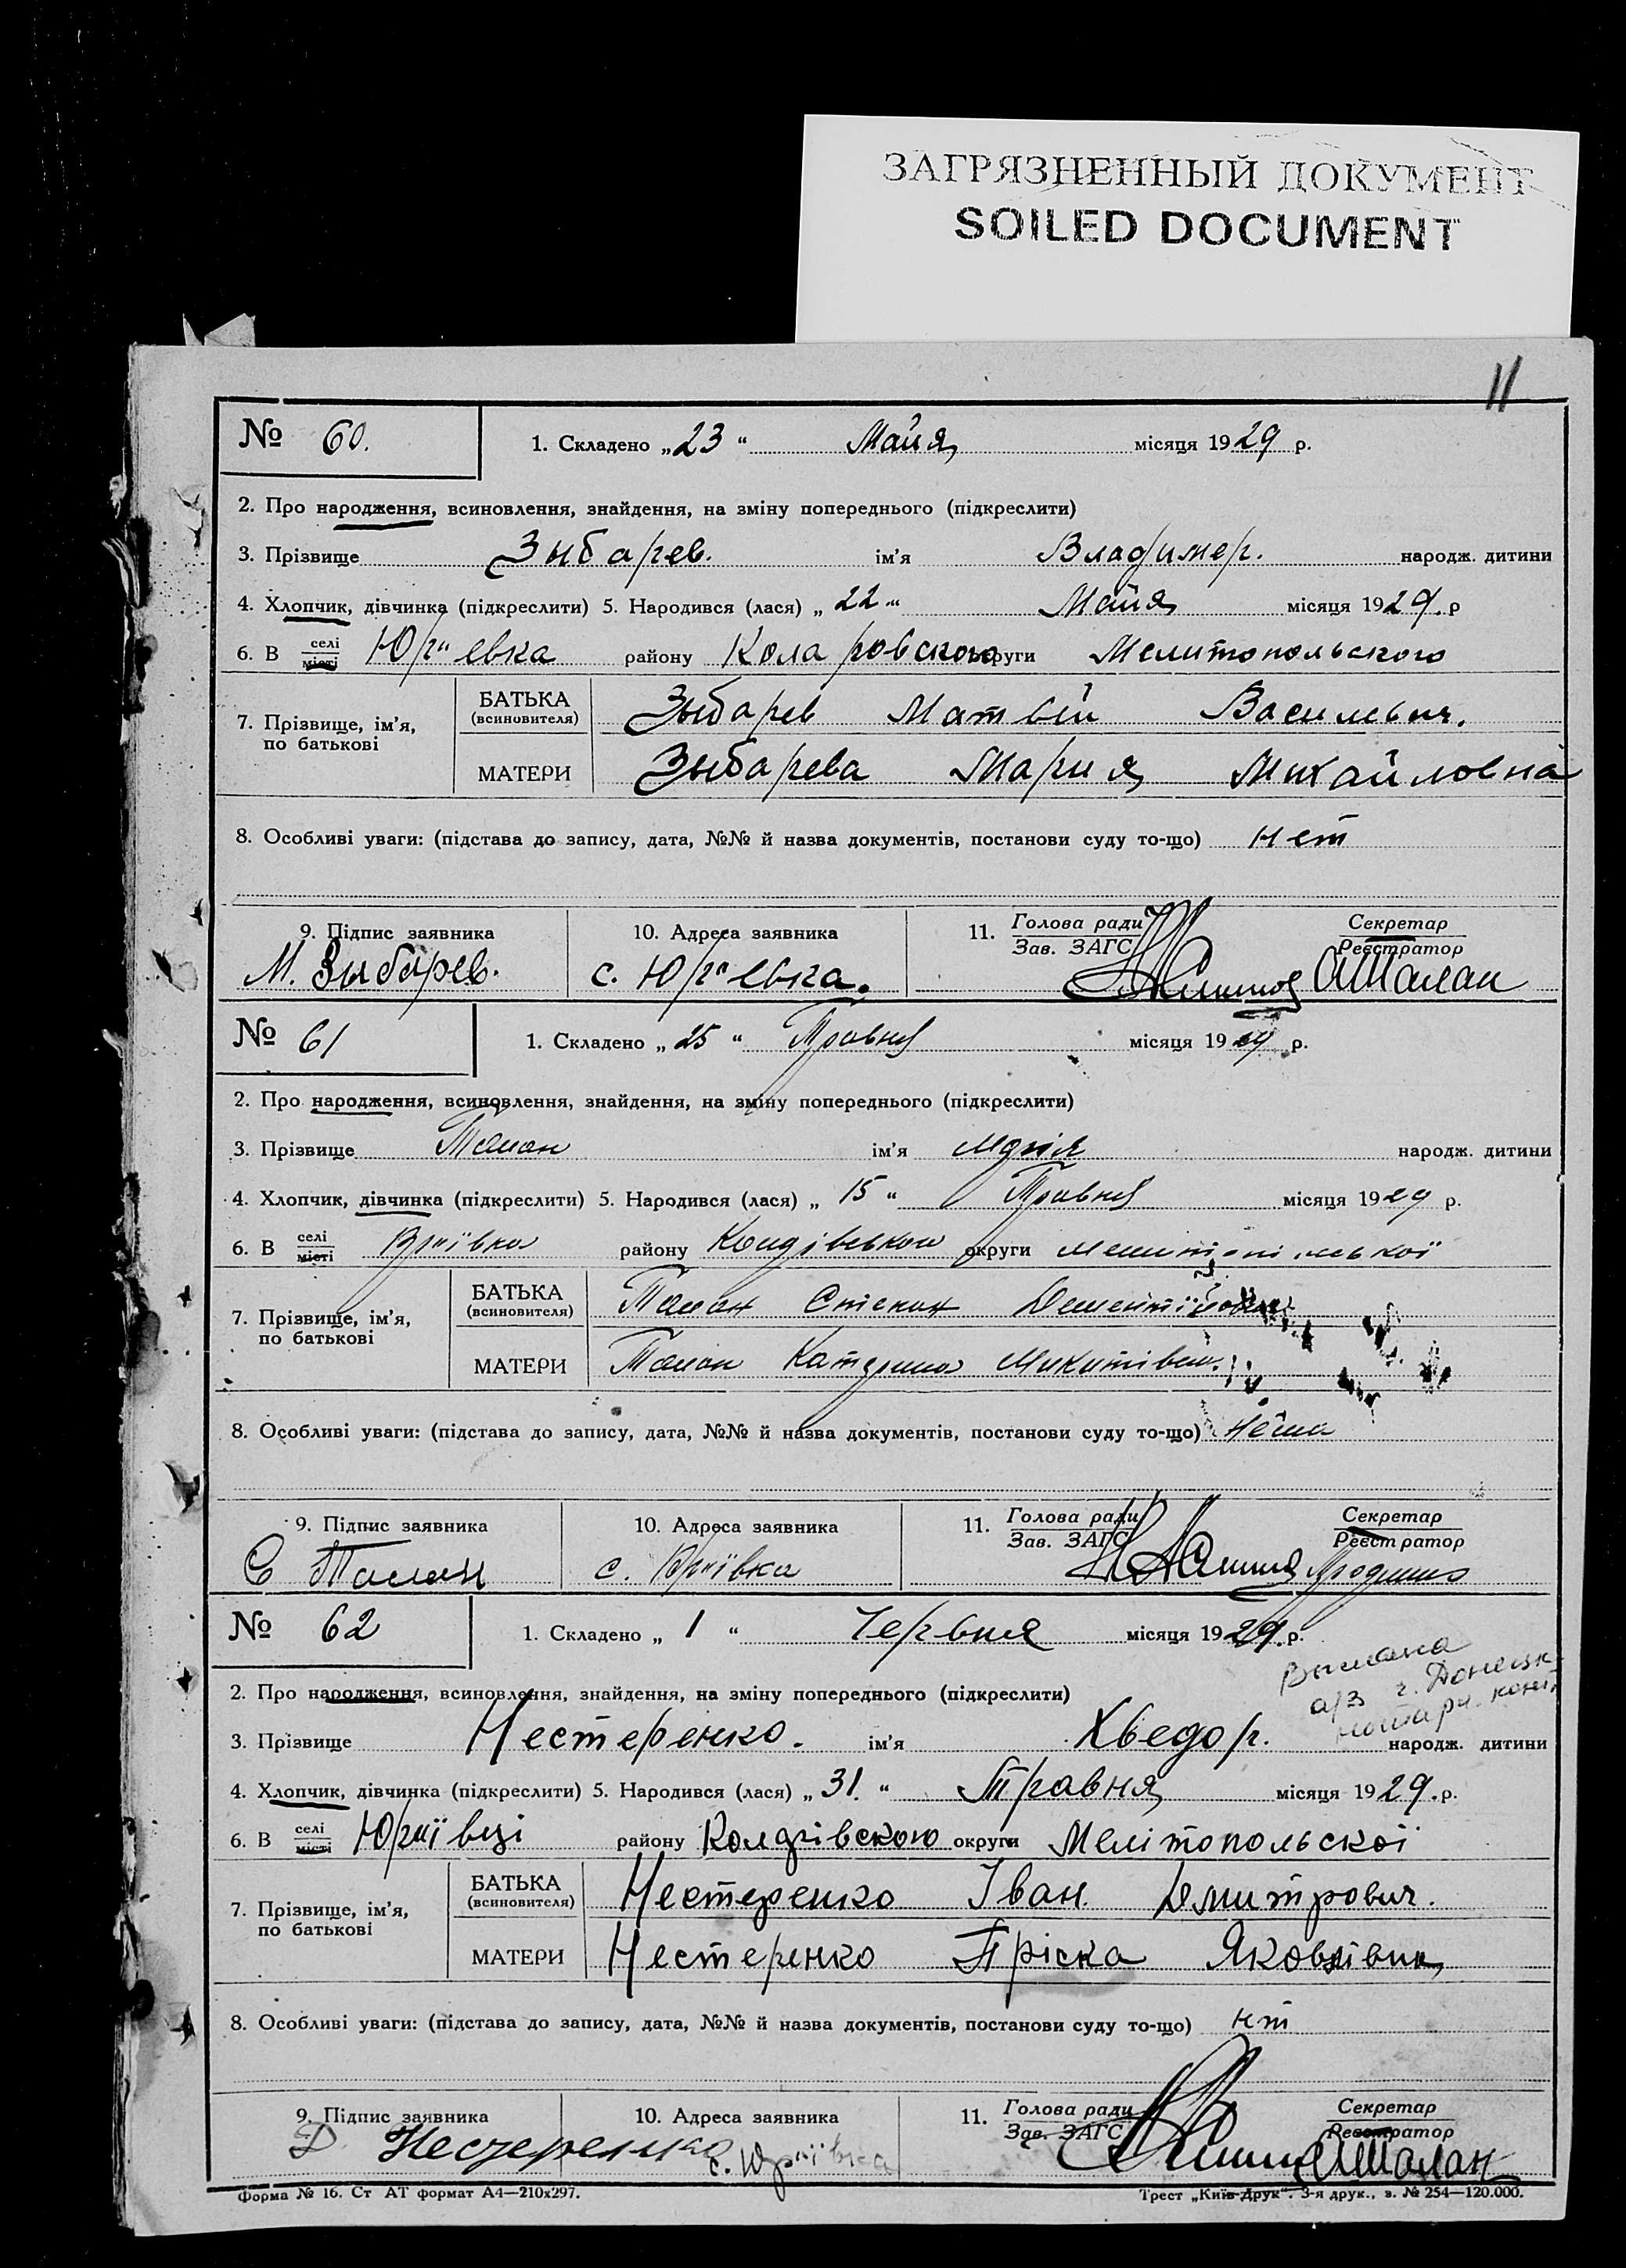 ЗАГРЯЗНЕННЫЙ ДОКУМЕНТ
SOILED DOCUMENT
11
№ 60. 1. Складено „23“ Майя місяця 1929 р.
2. Про народження, всиновлення, знайдення, на зміну попереднього (підкреслити)
3. Прізвище Зыбарев. ім'я Владимер. народж. дитини
4. Хлопчик, дівчинка (підкреслити) 5. Народився (лася) „22“ Майя місяця 1929. р
6. В селі місті Юрьевка району Коларовского округи Мелитопольского
7. Прізвище, ім'я, по батькові
БАТЬКА (всиновителя) Зыбарев Матвей Васильвич.
МАТЕРИ Зыбарева Мария Михайловна
8. Особливі уваги: (підстава до запису, дата, №№ й назва документів, постанови суду то-що) нет
9. Підпис заявника 10. Адреса заявника 11. Голова ради Зав. ЗАГС Секретар Реєстратор
М. Зыбарев. с. Юрьевка. АШалан
№ 61 1. Складено „25“ Травня місяця 1929 р.
2. Про народження, всиновлення, знайдення, на зміну попереднього (підкреслити)
3. Прізвище Талан ім'я Марія народж. дитини
4. Хлопчик, дівчинка (підкреслити) 5. Народився (лася) „15“ Травня місяця 1929 р.
6. В селі місті Юріївка району округи Мелитопільської
7. Прізвище, ім'я, по батькові
БАТЬКА (всиновителя) Талан Степан
МАТЕРИ Талан Катерина Микитівна
8. Особливі уваги: (підстава до запису, дата, №№ й назва документів, постанови суду то-що) Нема
9. Підпис заявника 10. Адреса заявника 11. Голова ради Зав. ЗАГС Секретар Реєстратор
С Талан с. Юріївка
№ 62 1. Складено „1“ Червня місяця 1929. р.
Донецк
2. Про народження, всиновлення, знайдення, на зміну попереднього (підкреслити)
3. Прізвище Нестеренко. ім'я Хведор. народж. дитини
4. Хлопчик, дівчинка (підкреслити) 5. Народився (лася) „31.“ Травня місяця 1929. р.
6. В селі місті Юріївці району округи Мелітопольскої
7. Прізвище, ім'я, по батькові
БАТЬКА (всиновителя) Нестеренко Іван. Дмитрович.
МАТЕРИ Нестеренко Пріска Яковлівна
8. Особливі уваги: (підстава до запису, дата, №№ й назва документів, постанови суду то-що) нт
9. Підпис заявника 10. Адреса заявника 11. Голова ради Зав. ЗАГС Секретар Реєстратор
Д Нестеренко с. Юріївка АШалан
Форма № 16. Ст АТ формат А4—210х297. Трест „Київ-Друк“. 3-я друк., з. № 254—120.000.